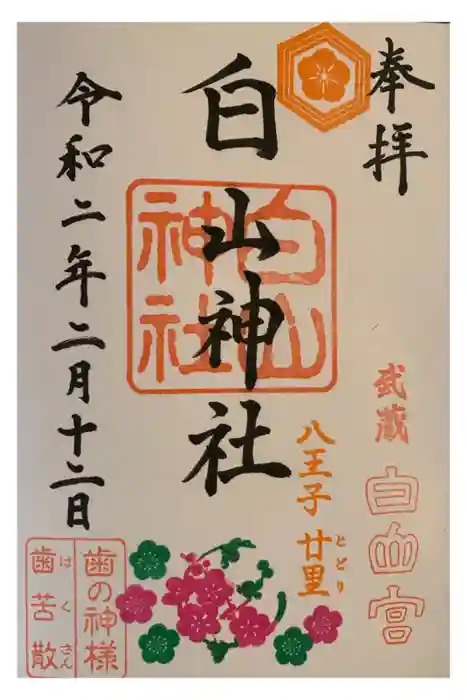 奉拝
武蔵
白山宮
白山神社
白山
神社
八王子 廿里
とどり
令和二年二月十二日
歯の神様
歯苦散
はくさん